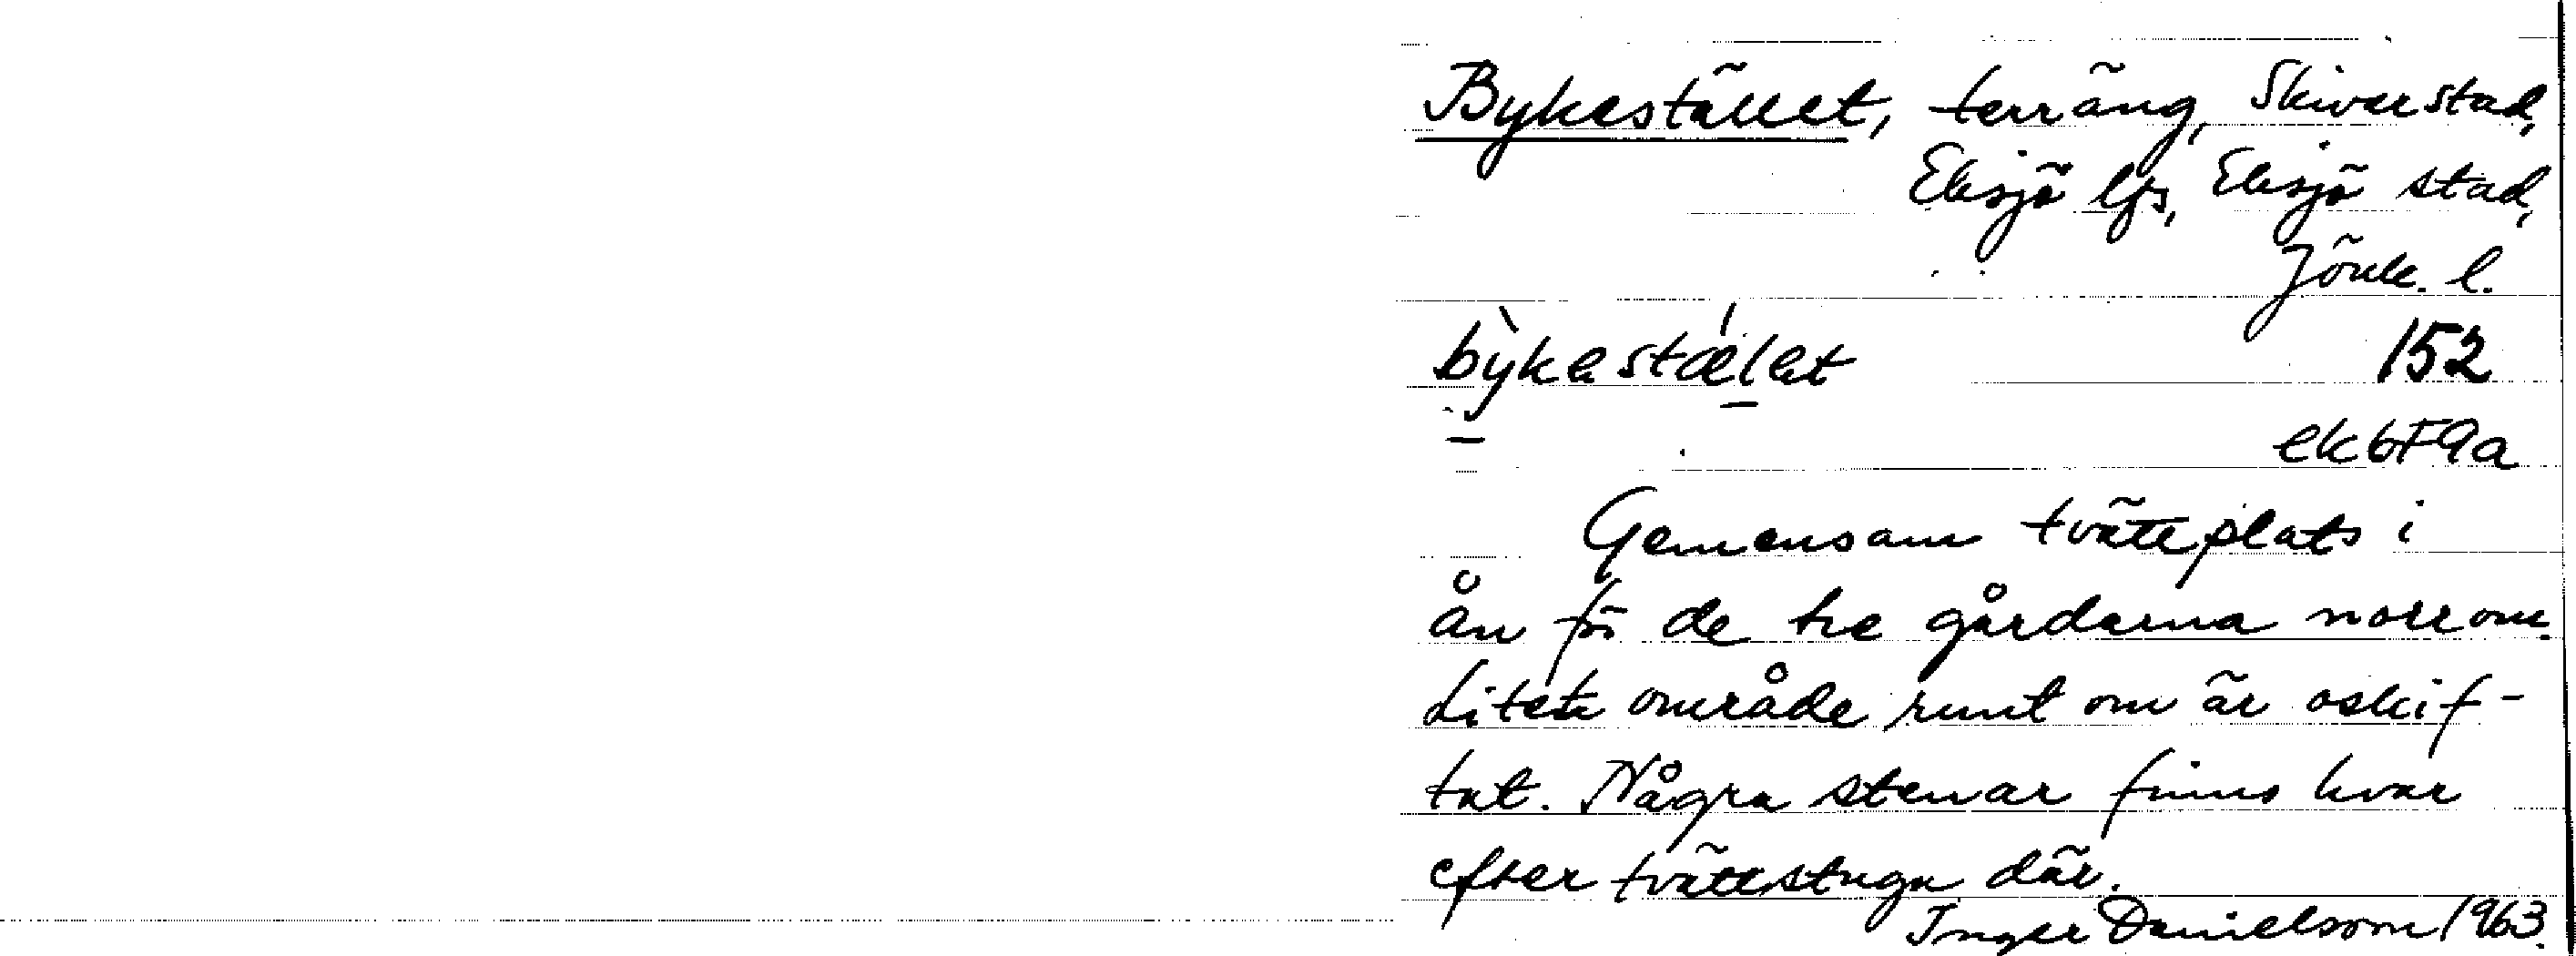 Bykestället, terräng, Skiverstad,
Eksjö lfs, Eksjö stad,
Jönk. l.
bỳkestǽlet 152
ek6F9a
Gemensam tvättplats i
ån för de tre gårdarna norrom.
Litet område runt om är oskif-
tat. Några stenar finns kvar
efter tvättstuga där.
Inger Danielsson 1963.